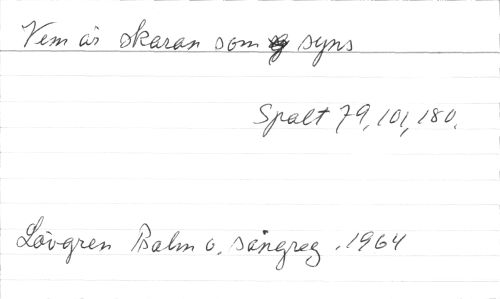 Vem är skaran som syns
Spalt 79, 101, 180.
Lövgren Psalm o. sångreg. 1964